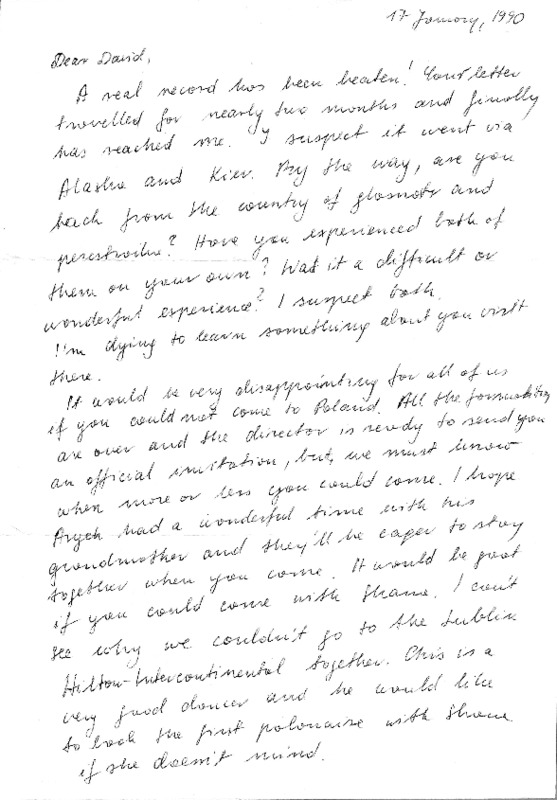 17 January, 1990
Dear David,
A real record has been beaten! Your letter
travelled for nearly two months and finally
has reached me. I suspect it went via
Alaska and Kiev. By the way, are you
back from the country of glasnost and
perestroika? Have you experienced both of
them on your own? Was it a difficult or
wonderful experience? I suspect both.
I'm dying to learn something about you visit
there.
It would be very disappointing for all of us
if you could not come to Poland. All the formalities
are over and the director is ready to send you
an official invitation, but, we must know
when more or less you could come. I hope
had a wonderful time with his
grandmother and they'll be eager to stay
together when you come. It would be great
if you could come with Shane. I can't
see why we couldn't go to the Lublin
Hilton-Intercontinental together. Chris is a
very good dancer and he would like
to book the first polonaise with Shane
if she doesn't mind.